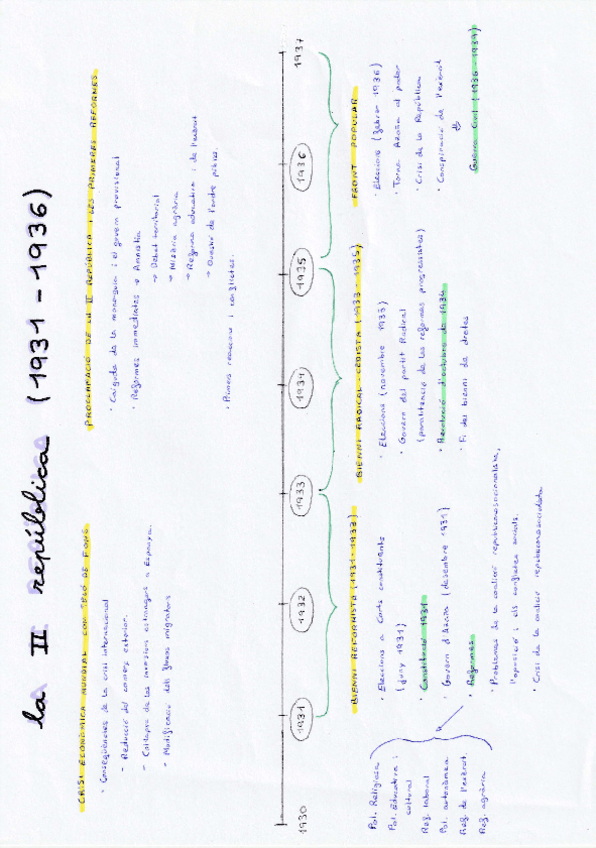 la II república (1931 - 1936)
CRISI ECONÒMICA MUNDIAL COM TELÓ DE FONS
· Conseqüències de la crisi internacional
- Reducció del comerç exterior.
- Col·lapse de les inversions estrangers a Espanya.
- Modificació dels fluxos migratoris
PROCLAMACIÓ DE LA II REPÚBLICA I LES PRIMERES REFORMES
· Caiguda de la monarquia i el govern provisional
· Reformes immediates → Amnistia
→ Debat territorial
→ Misèria agrària
→ Reforma educativa i de l'exèrcit
→ Qüestió de l'ordre públic.
· Primers reaccions i conflictes.
1930 1931 1932 1933 1934 1935 1936 1937
BIENNI REFORMISTA (1931 - 1933)
· Eleccions a Corts constituents
(juny 1931)
· Constitució 1931
· Govern d'Azaña (desembre 1931)
· Reformes
Pol. Religiosa
Pol. Educativa i
cultural
Reg. laboral
Pol. autonòmica
Reg. de l'exèrcit
Reg. agrària
· Problemes de la coalició republicanosocialista,
l'oposició i els conflictes socials.
· Crisi de la coalició republicanosocialista
BIENNI RADICAL-CEDISTA (1933 - 1935)
· Eleccions (novembre 1933)
· Govern del partit Radical
(paralització de les reformes progressistes)
· Revolució d'octubre de 1934
· Fi del bienni de dretes
FRONT POPULAR
· Eleccions (febrer 1936)
· Torna Azaña al poder
· Crisi de la República
· Conspiració de l'exèrcit
⇓
Guerra Civil (1936 - 1939)